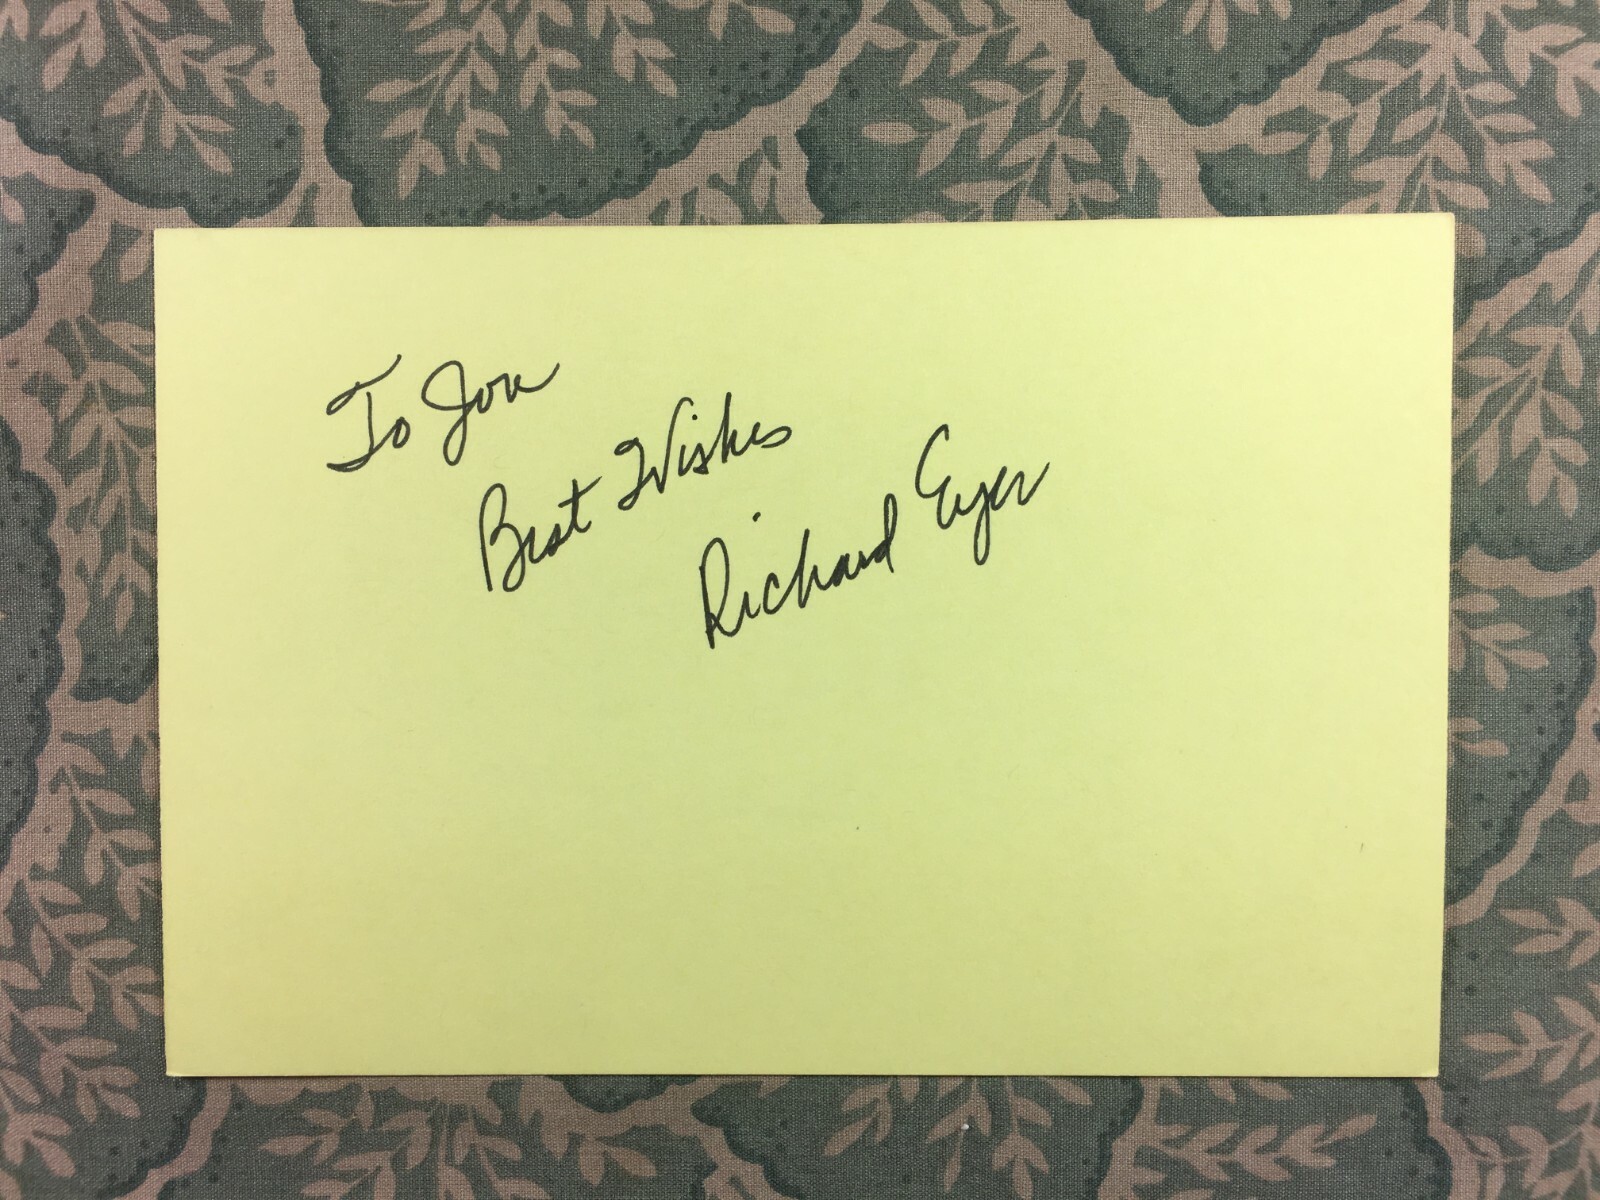 To Jon
Best Wishes
Richard Eyer